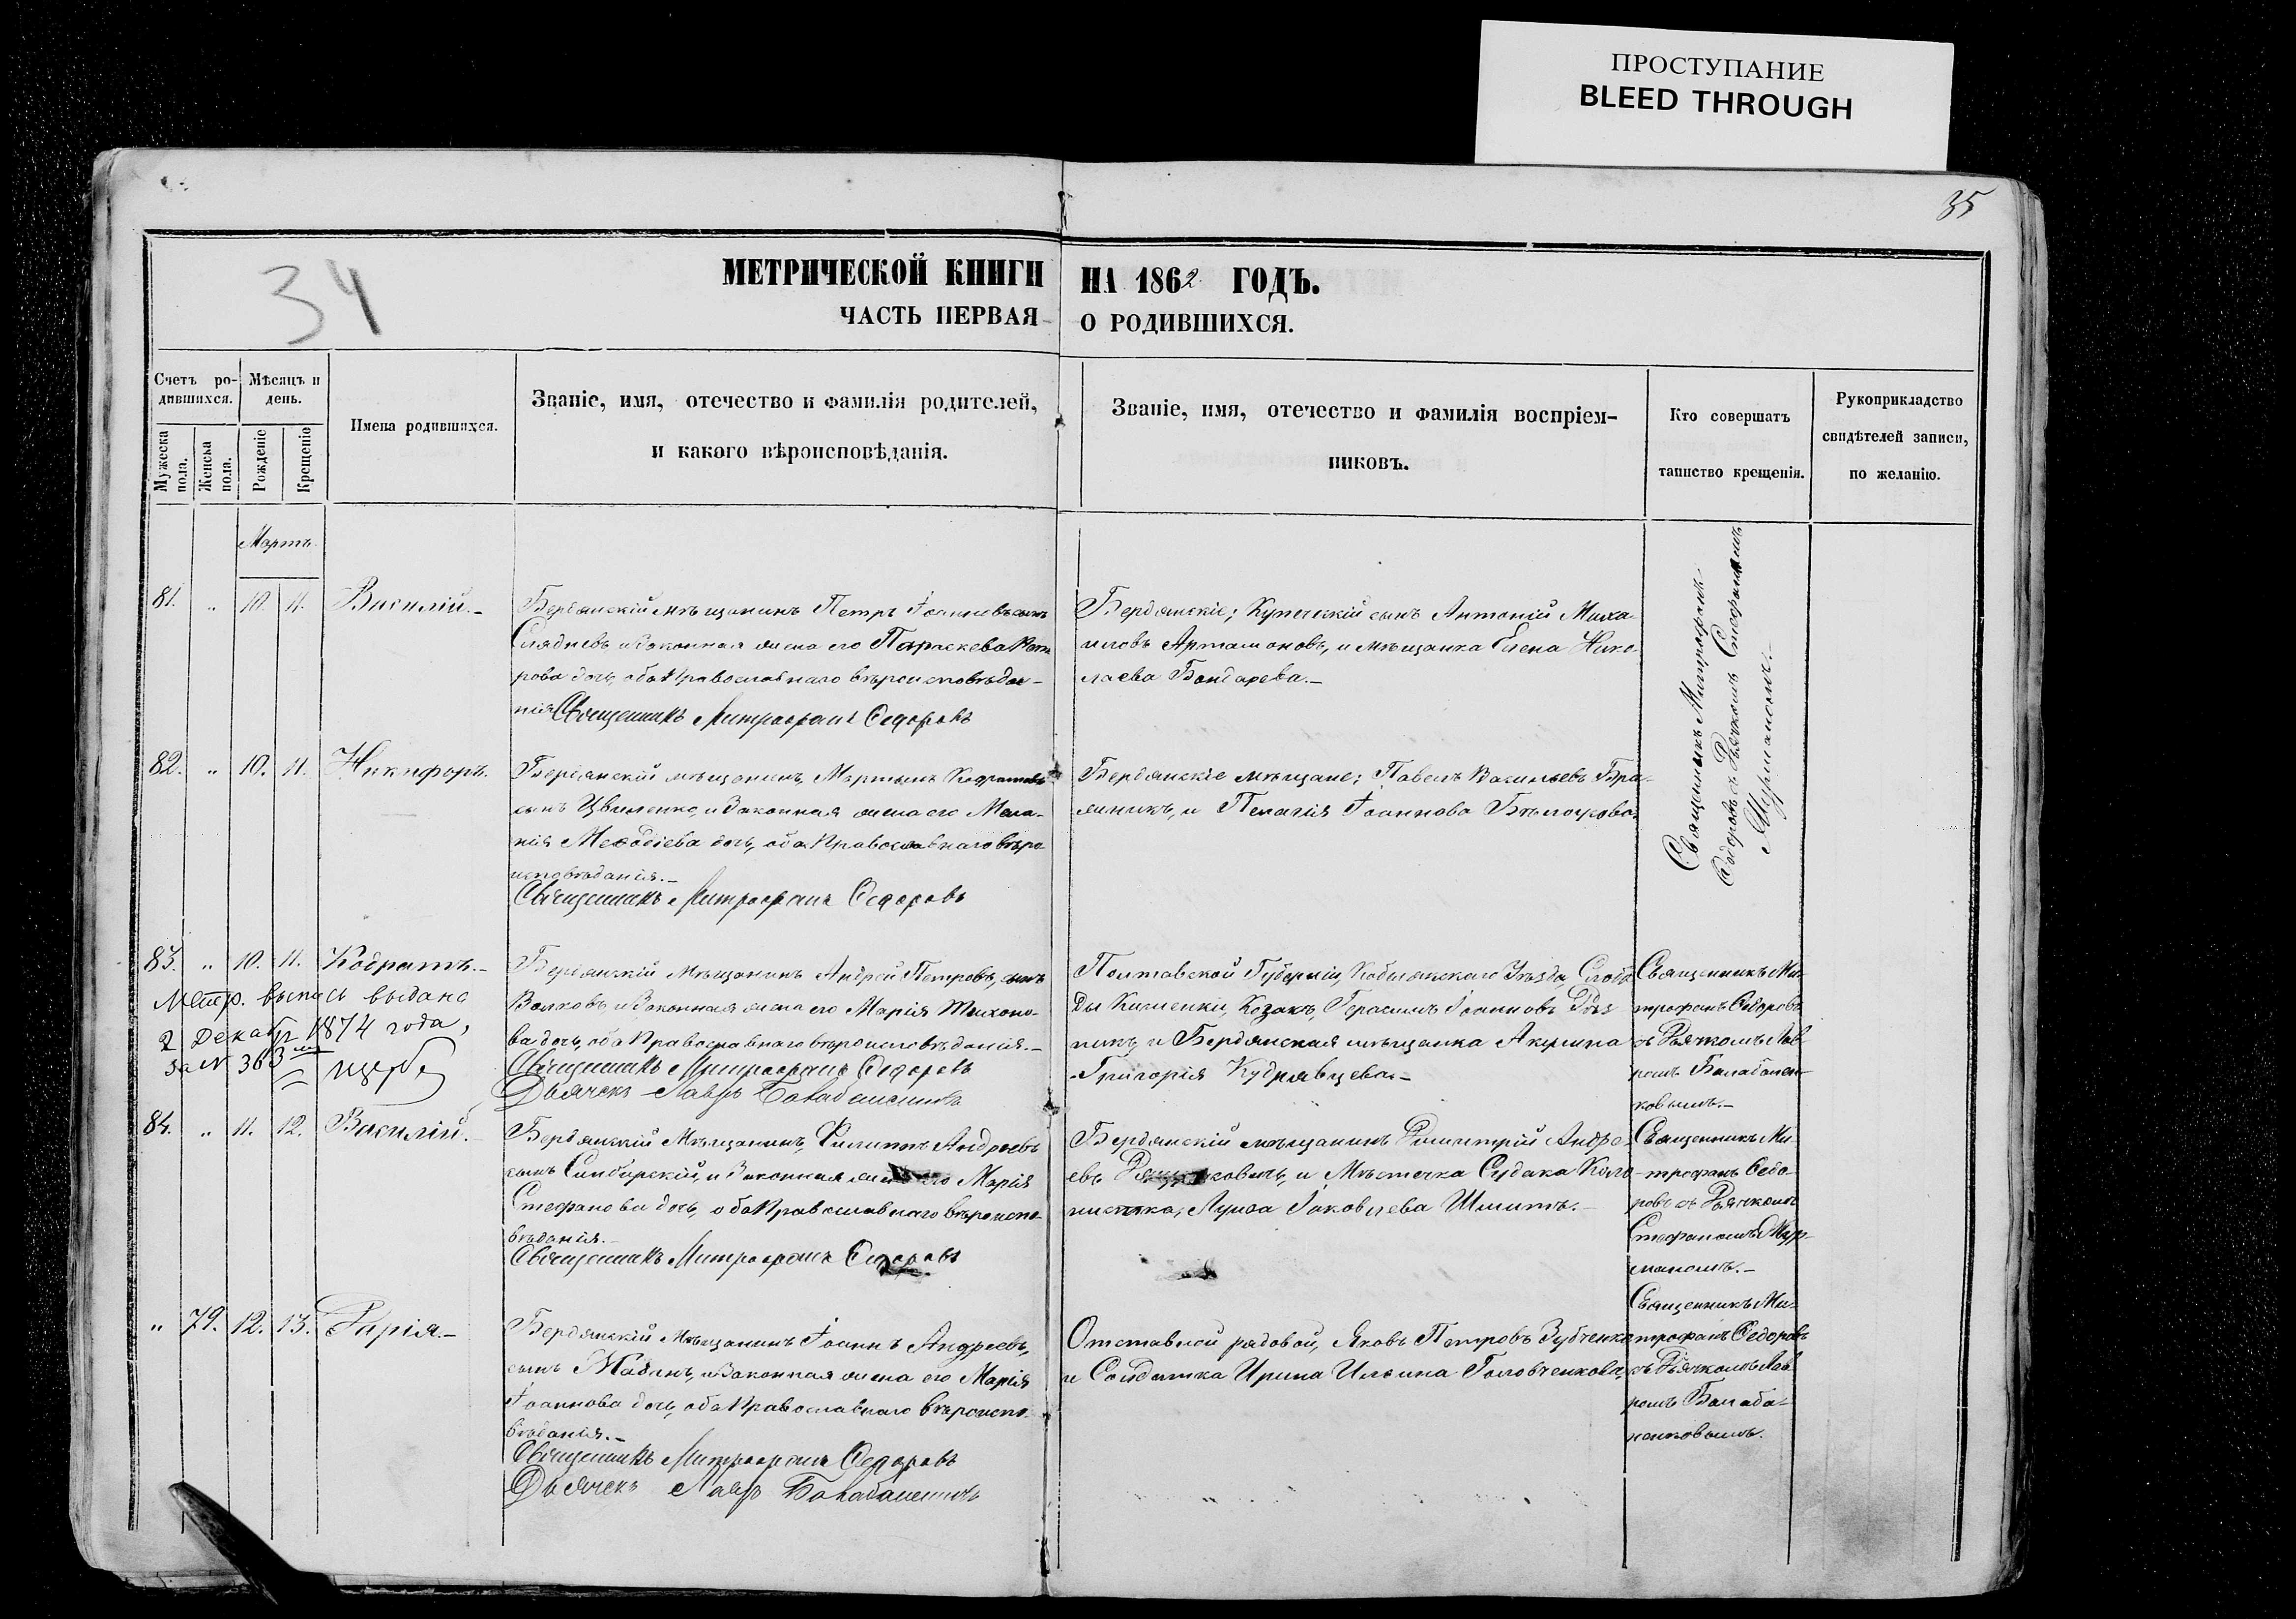 ПРОСТУПАНИЕ
BLEED THROUGH
35
34
МЕТРИЧЕСКОЙ КНИГИ НА 1862 ГОДЪ.
ЧАСТЬ ПЕРВАЯ О РОДИВШИХСЯ.
Счетъ ро-
дившихся.
Мужеска
пола.
Женска
пола.
Мѣсяцъ и
день.
Рожденіе
Крещеніе
Имена родившихся.
Званіе, имя, отечество и фамилія родителей,
и какого вѣроисповѣданія.
Званіе, имя, отечество и фамилія воспріем-
никовъ.
Кто совершатъ
таинство крещенія.
Рукоприкладство
свидѣтелей записи,
по желанію.
Мартъ
81. „ 10. 11. Василій.-
Бердянскій мѣщанинъ Петръ Іоанновъ сынъ
и законная жена его Параскева
рова дочь, оба Православнаго вѣроисповѣда-
нія Священникъ Митрофанъ Ѳедоровъ
Бердянскіе; Купеческій сынъ Антоній Миха-
иловъ Артамоновъ, и мѣщанка Елена Нико-
лаева Бондарева.-
Священникъ Митрофанъ
Ѳедоровъ съ Дьячкомъ Стефаномъ
Мурманомъ.-
82. „ 10. 11. Никифоръ.
Бердянскій мѣщанинъ, Мартынъ
сынъ Цвиленко, и законная жена его Мела-
нія Меѳодіева дочь, оба Православнаго вѣро-
исповѣданія.-
Священникъ Митрофанъ Ѳедоровъ
Бердянскіе мѣщане; Павелъ Васильевъ Бра-
жникъ, и Пелагія Іоаннова
83. „ 10. 11. Кодратъ.-
Метр. выпись выдана
2 Декабр 1874 года,
за N 363
Бердянскій мѣщанинъ Андрей Петровъ, сынъ
Волковъ, и законная жена его Марія Тихоно-
ва дочь, оба Православнаго вѣроисповѣданія.-
Священникъ Митрофанъ Ѳедоровъ
Дьячекъ Лавръ Балабаненковъ
Полтавской Губерніи, Кобыляцкаго Уѣзда, Слобо-
ды Кишенки, Козакъ, Герасимъ Іоанновъ
никъ, и Бердянская мѣщанка Акулина
Григорія Кудрявцева.-
Священникъ Ми-
трофанъ Ѳедоровъ
съ Дьячкомъ Лав-
ромъ Балабанен-
ковымъ.-
84. „ 11. 12. Василій.-
Бердянскій Мѣщанинъ, Филиппъ Андреевъ
сынъ Симбирскій, и законная жена его Марія
Стефанова дочь, оба Православнаго вѣроиспо-
вѣданія.-
Священникъ Митрофанъ Ѳедоровъ
Бердянскій мѣщанинъ Димитрій Андре-
евъ и Мѣстечка Судака Коло-
нистка, Луиза Іаковлева Шмитъ.-
Священникъ Ми-
трофанъ Ѳедо-
ровъ съ Дьячкомъ
Стефаномъ Мур-
маномъ.-
„ 79. 12. 13. Дарія.-
Бердянскій Мѣщанинъ Іоаннъ Андреевъ,
сынъ и законная жена его Марія
Іоаннова дочь, оба Православнаго вѣроиспо-
вѣданія.-
Священникъ Митрофанъ Ѳедоровъ
Дьячекъ Лавръ Балабаненковъ
Отставной рядовой, Яковъ Петровъ Зубченко
и Солдатка Ирина Ильина Головченкова,
Священникъ Ми-
трофанъ Ѳедоровъ
съ Дьячкомъ Лав-
ромъ Балаба-
ненковымъ.